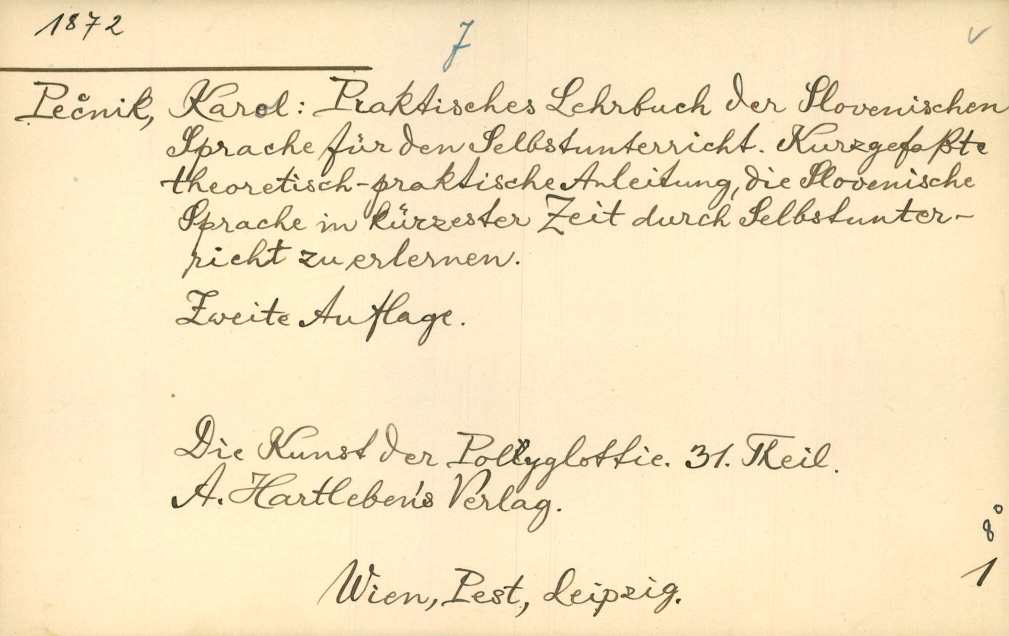 1872
7
Pečnik, Karol: Praktisches Lehrbuch der Slovenischen
Sprache für den Selbstunterricht. Kurzgefaßte
theoretisch-praktische Anleitung, die Slovenische
Sprache in kürzester Zeit durch Selbstunter-
richt zu erlernen.
Zweite Auflage.
Die Kunst der Polyglottie. 31. Theil.
A. Hartleben's Verlag.
8°
1
Wien, Pest, Leipzig.